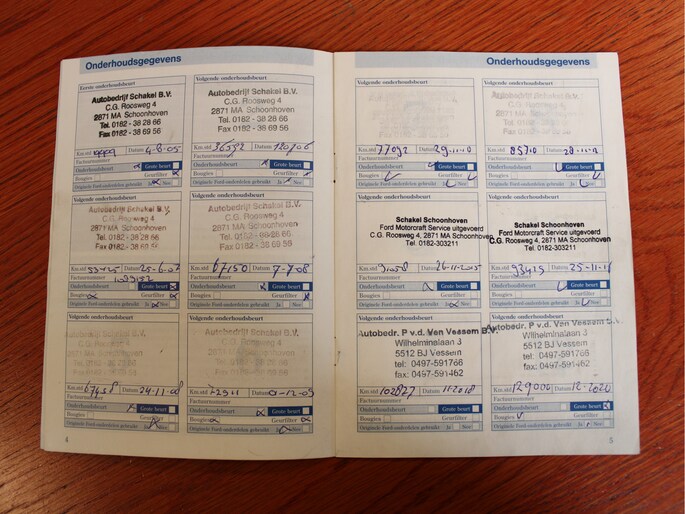 Onderhoudsgegevens
Eerste onderhoudsbeurt
Autobedrijf Schakel B.V.
C.G. Roosweg 4
2871 MA Schoonhoven
Tel. 0182 - 38 28 66
Fax 0182 - 38 69 56
Km.std Datum 4-8-05
Factuurnummer
Onderhoudsbeurt Grote beurt
Bougies Geurfilter
Originele Ford-onderdelen gebruikt Ja Nee
Volgende onderhoudsbeurt
Autobedrijf Schakel B.V.
C.G. Roosweg 4
2871 MA Schoonhoven
Tel. 0182 - 38 28 66
Fax 0182 - 38 69 56
Km.std 36592 Datum 120706
Factuurnummer
Onderhoudsbeurt Grote beurt
Bougies Geurfilter
Originele Ford-onderdelen gebruikt Ja Nee
Volgende onderhoudsbeurt
Autobedrijf Schakel B.V.
C.G. Roosweg 4
2871 MA Schoonhoven
Tel. 0182 - 38 28 66
Fax 0182 - 38 69 56
Km.std Datum 25-6-07
Factuurnummer
Onderhoudsbeurt Grote beurt
Bougies Geurfilter
Originele Ford-onderdelen gebruikt Ja Nee
Volgende onderhoudsbeurt
Autobedrijf Schakel B.V.
C.G. Roosweg 4
2871 MA Schoonhoven
Tel. 0182 - 38 28 66
Fax 0182 - 38 69 56
Km.std 67150 Datum 7-7-08
Factuurnummer
Onderhoudsbeurt Grote beurt
Bougies Geurfilter
Originele Ford-onderdelen gebruikt Ja Nee
Volgende onderhoudsbeurt
Km.std 67458 Datum 24-11-08
Factuurnummer
Onderhoudsbeurt Grote beurt
Bougies Geurfilter
Originele Ford-onderdelen gebruikt Ja Nee
Volgende onderhoudsbeurt
Autobedrijf Schakel B.V.
C.G. Roosweg 4
2871 MA Schoonhoven
Km.std 72911 Datum 01-12-09
Factuurnummer
Onderhoudsbeurt Grote beurt
Bougies Geurfilter
Originele Ford-onderdelen gebruikt Ja Nee
4
Onderhoudsgegevens
Volgende onderhoudsbeurt
Km.std 77092 Datum 29-11-10
Factuurnummer
Onderhoudsbeurt Grote beurt
Bougies Geurfilter
Originele Ford-onderdelen gebruikt Ja Nee
Volgende onderhoudsbeurt
Km.std Datum
Factuurnummer
Onderhoudsbeurt Grote beurt
Bougies Geurfilter
Originele Ford-onderdelen gebruikt Ja Nee
Volgende onderhoudsbeurt
Schakel Schoonhoven
Ford Motorcraft Service uitgevoerd
C.G. Roosweg 4, 2871 MA Schoonhoven
Tel. 0182-303211
Km.std 91058 Datum 26-11-2015
Factuurnummer
Onderhoudsbeurt Grote beurt
Bougies Geurfilter
Originele Ford-onderdelen gebruikt Ja Nee
Volgende onderhoudsbeurt
Schakel Schoonhoven
Ford Motorcraft Service uitgevoerd
C.G. Roosweg 4, 2871 MA Schoonhoven
Tel. 0182-303211
Km.std 93425 Datum 25-11-16
Factuurnummer
Onderhoudsbeurt Grote beurt
Bougies Geurfilter
Originele Ford-onderdelen gebruikt Ja Nee
Volgende onderhoudsbeurt
Autobedr. P v.d. Ven Vessem B.V.
Wilhelminalaan 3
5512 BJ Vessem
tel: 0497-591766
fax: 0497-591462
Km.std 102827 Datum 11-2018
Factuurnummer
Onderhoudsbeurt Grote beurt
Bougies Geurfilter
Originele Ford-onderdelen gebruikt Ja Nee
Volgende onderhoudsbeurt
Autobedr. P v.d. Ven Vessem B.V.
Wilhelminalaan 3
5512 BJ Vessem
tel: 0497-591766
fax: 0497-591462
Km.std 129000 Datum 12-2020
Factuurnummer
Onderhoudsbeurt Grote beurt
Bougies Geurfilter
Originele Ford-onderdelen gebruikt Ja Nee
5